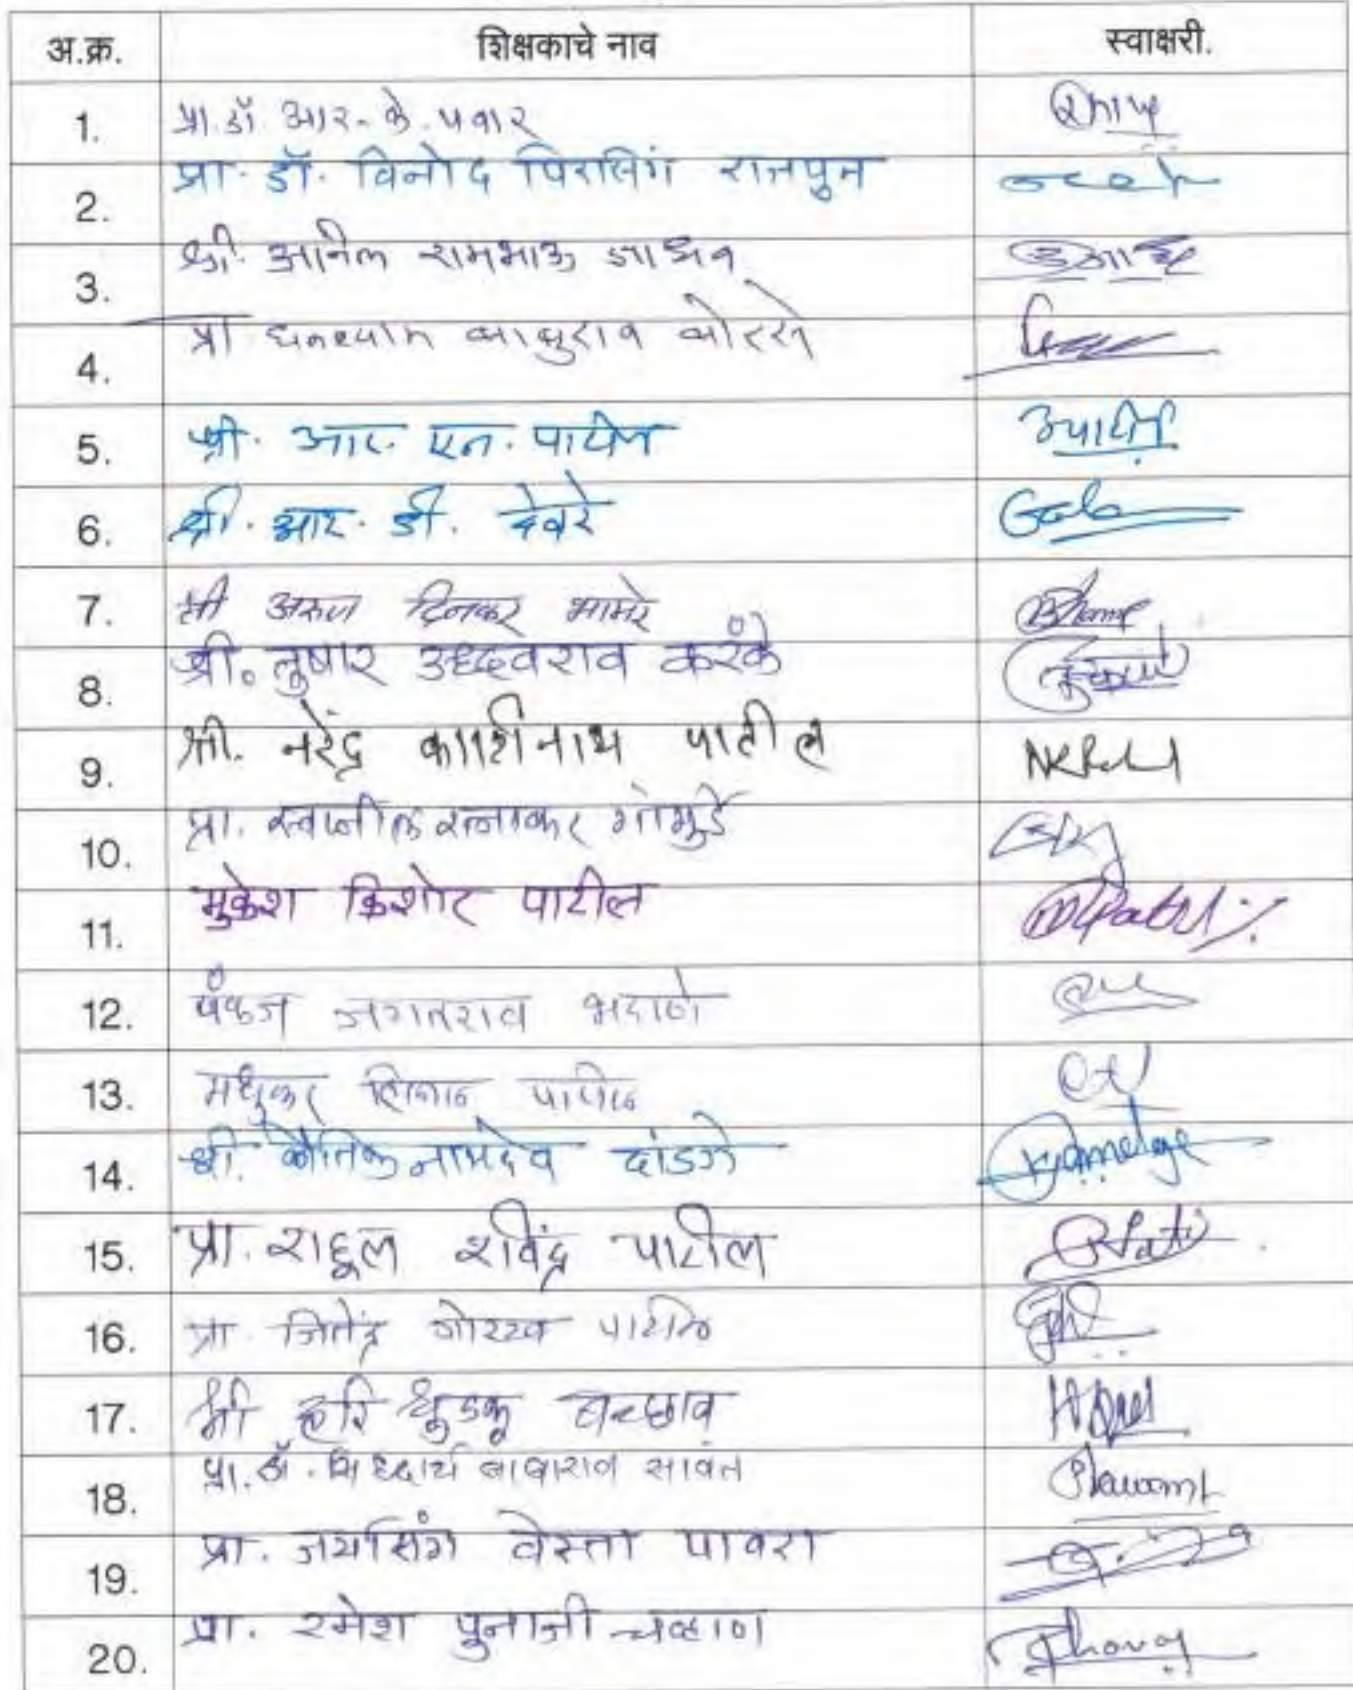 अ.क्र. शिक्षकाचे नाव स्वाक्षरी.
1. प्रा. डॉ. आर. के. पवार
2. प्रा. डॉ. विनोद विरसिंग राजपुत
3. श्री. अनिल रामभाऊ जाधव
4. प्रा घनश्याम बापुराव बोरसे
5. श्री. आर. एन. पाटील
6. श्री. आर. डी. देवरे
7. श्री अरुण दिनकर भामरे
8. श्री. तुषार उध्दवराव करंके
9. श्री. नरेंद्र काशिनाथ पाटील NKPatil
10. प्रा. स्वप्नील रत्नाकर
11. मुकेश किशोर पाटील MKPatil
12. पंकज जगतराव भदाणे
13. मधुकर पाटील
14. श्री. कौतिक नामदेव दांडगे
15. प्रा. राहूल रविंद्र पाटील
16. प्रा. जितेंद्र गोरख पाटील
17. श्री हरि धुडकू बच्छाव
18. प्रा. डॉ. सिध्दार्थ बाबाराव सावंत
19. प्रा. जयसिंग वेस्ता पावरा
20. प्रा. रमेश पुनाजी चव्हाण